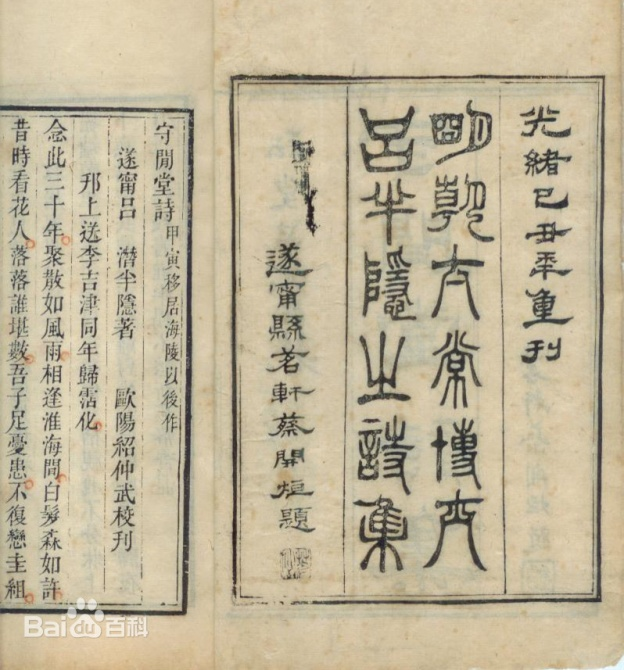 光緒己丑年重刊
明朝太常博士
呂半隱之詩集
遂甯縣茗軒蔡開烜題
守閒堂詩甲寅移居海陵以後作
遂甯呂 潛半隱著 歐陽紹仲武校刊
邗上送李吉津同年歸霑化
念此三十年聚散如風雨相逢淮海間白髮森如許
昔時看花人落落誰堪數吾子足憂患不復戀圭組
Baidu百科